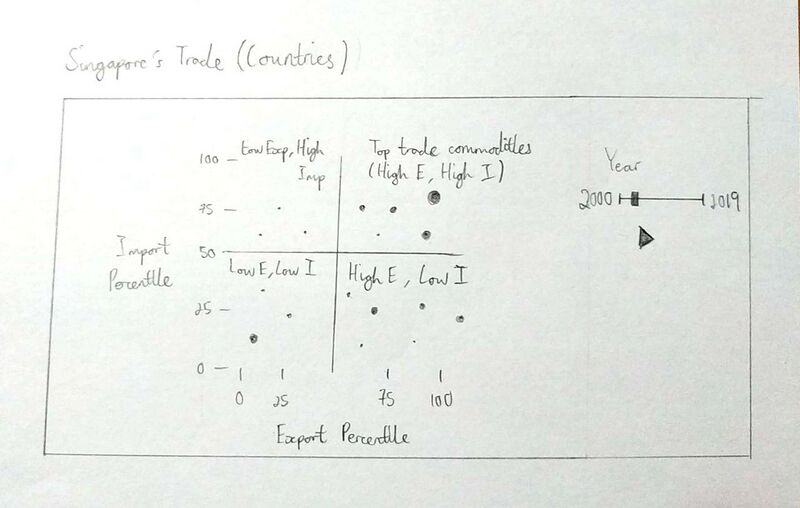 Singapore's Trade (Countries)
Low Exp, High
Imp
Top trade commodities
(High E, High I)
Year
2000
2019
100
75
50
25
0
Import
Percentile
Low E, Low I
High E, Low I
0
25
75
100
Export Percentile